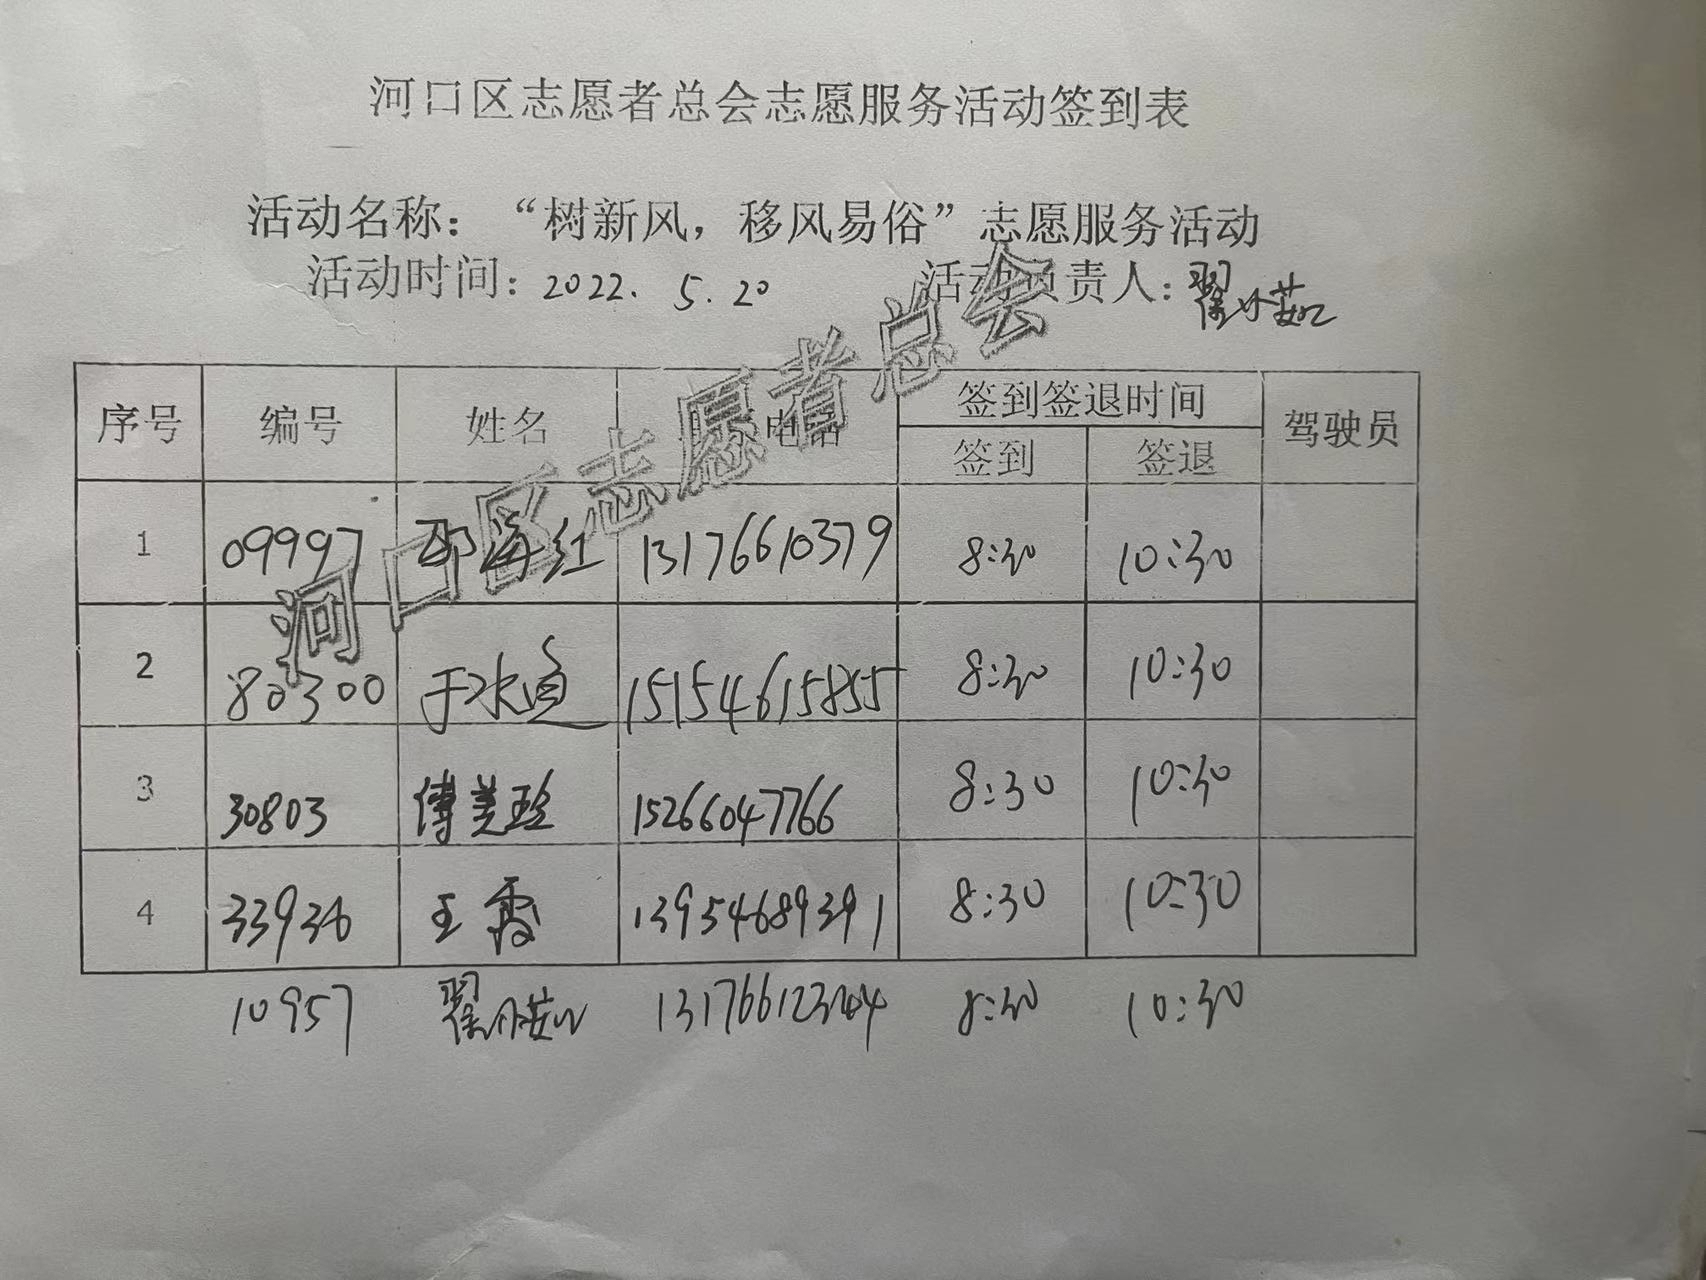 河口区志愿者总会志愿服务活动签到表
活动名称：“树新风，移风易俗”志愿服务活动
活动时间：2022.5.20 活动负责人：翟
河口区志愿者总会
序号 编号 姓名 电话 签到签退时间 驾驶员
签到 签退
1 09997 邵海红 13176610379 8:30 10:30
2 80300 于水 15154615855 8:30 10:30
3 30803 傅美玲 15266047766 8:30 10:30
4 33936 王霞 13954689391 8:30 10:30
10957 翟 8:30 10:30